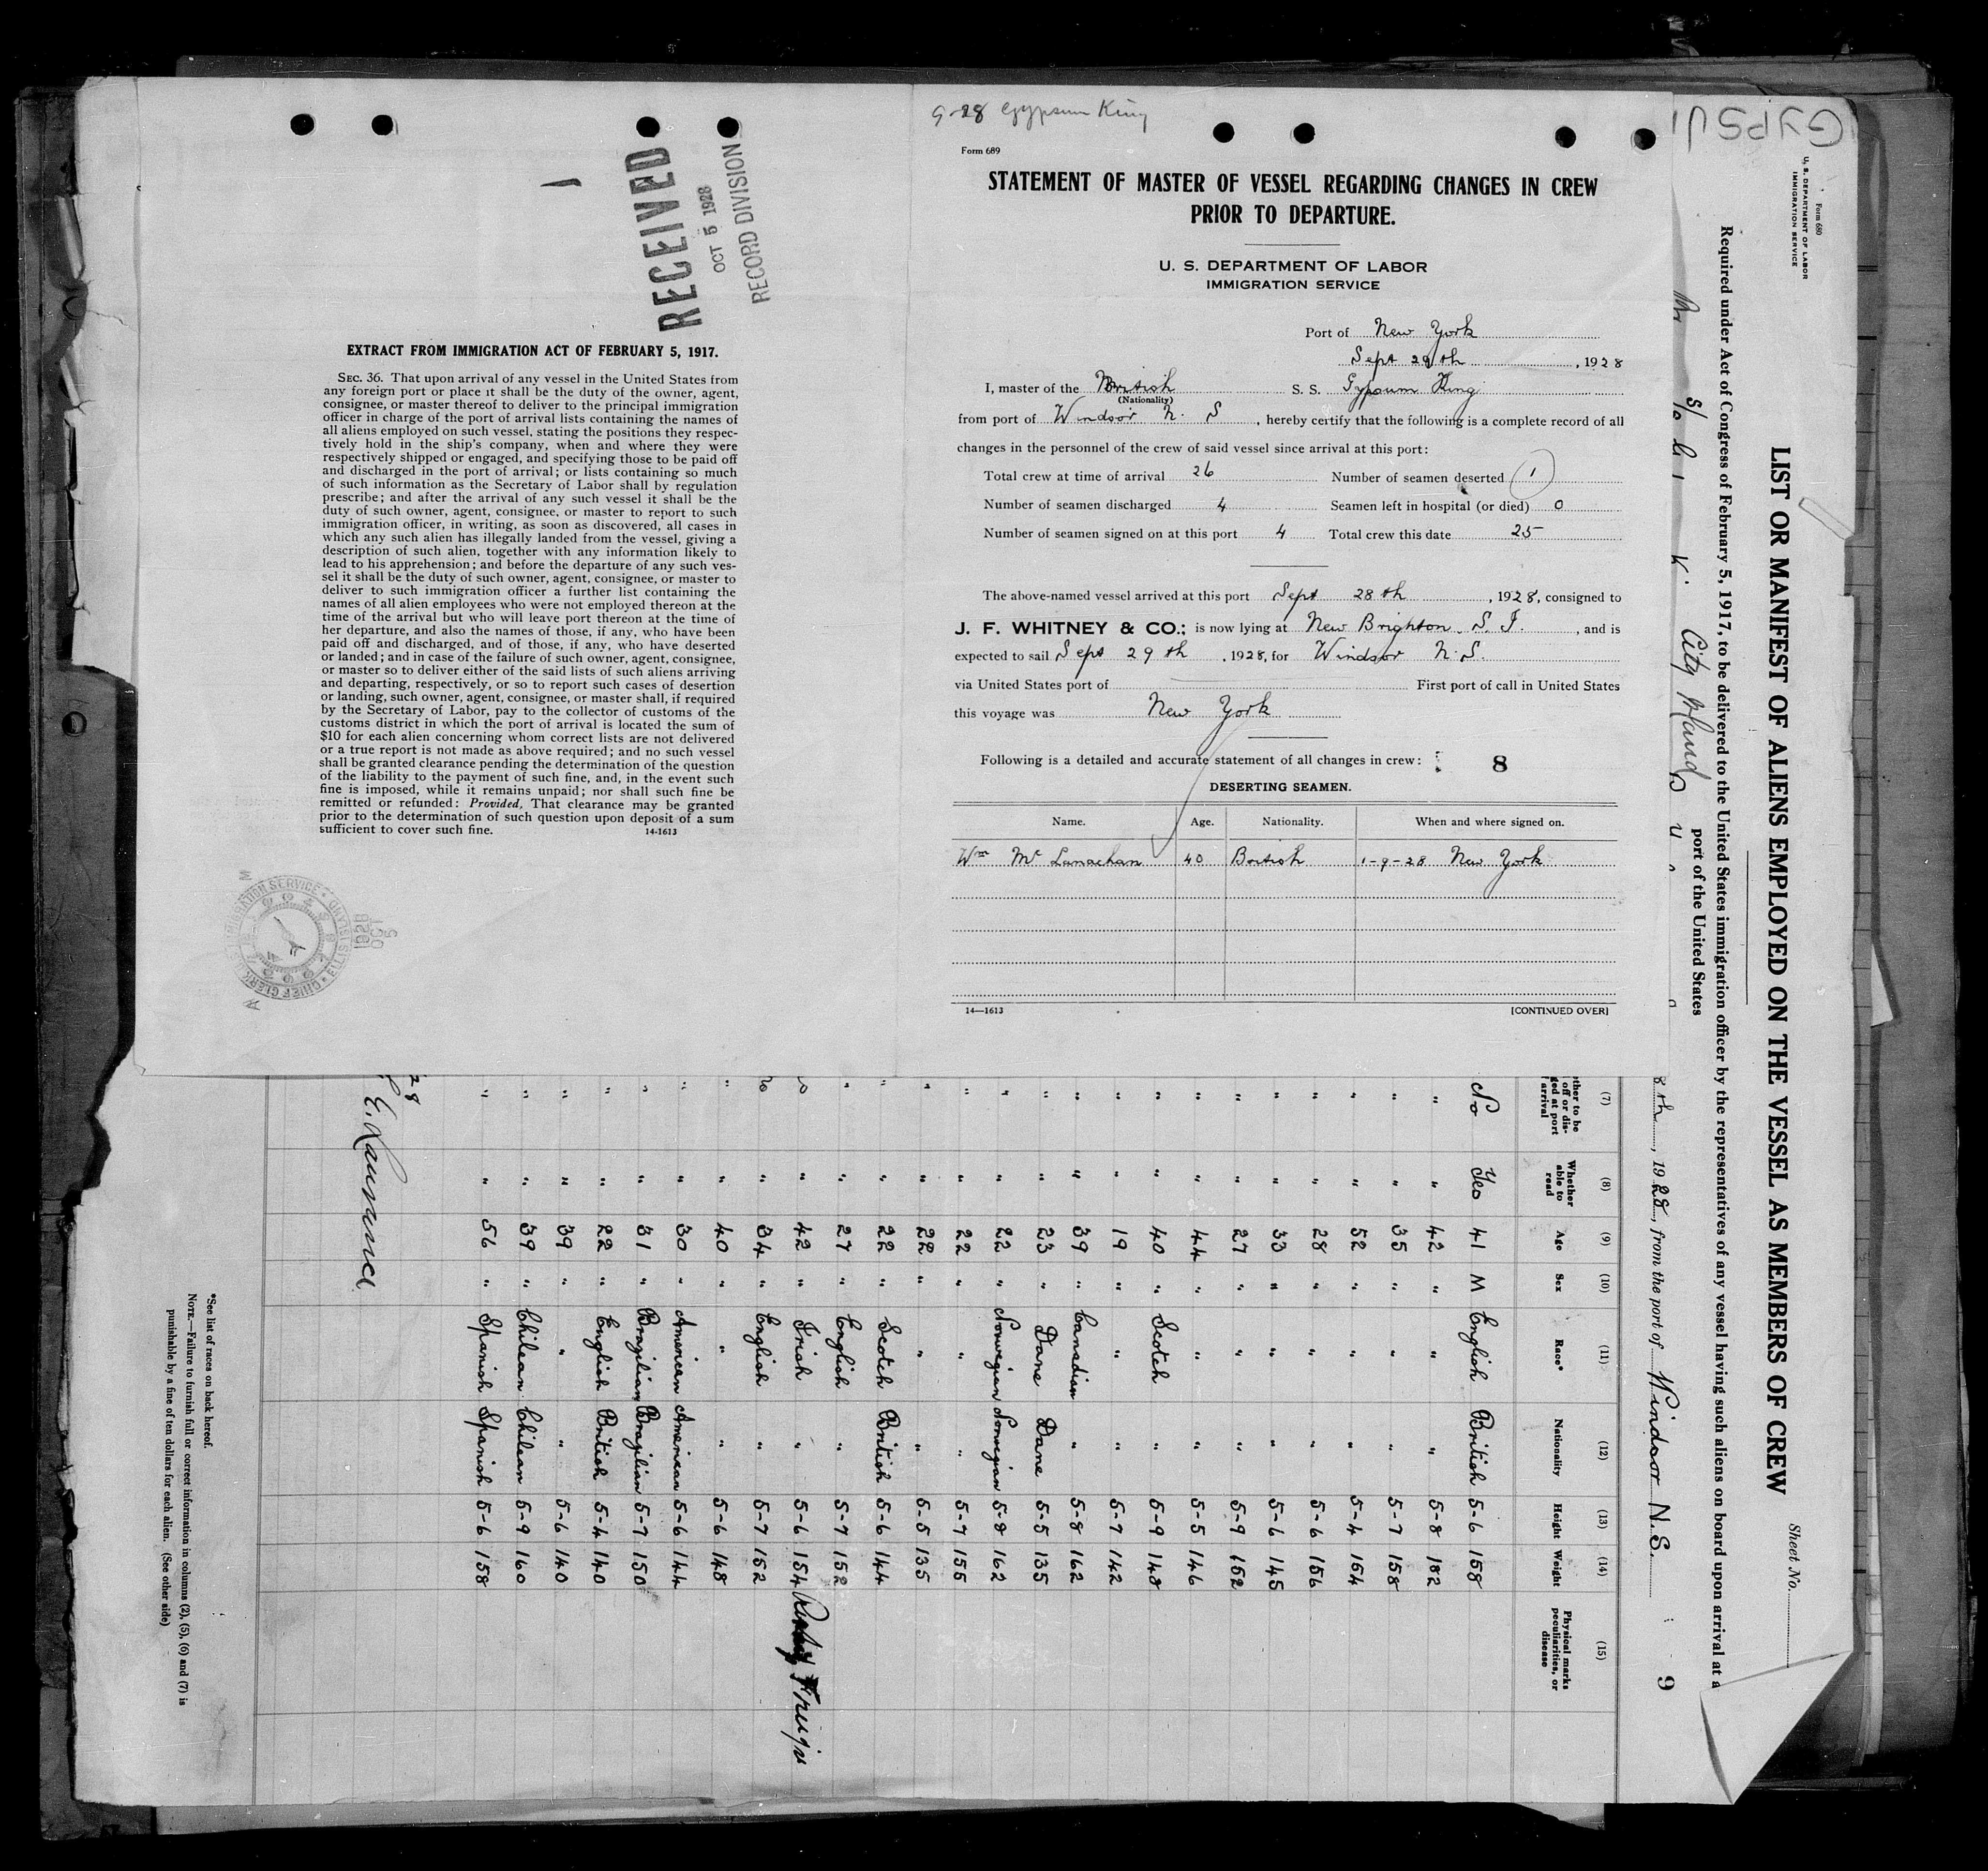 RECEIVED
OCT 5 1928
RECORD DIVISION
EXTRACT FROM IMMIGRATION ACT OF FEBRUARY 5, 1917.
SEC. 36. That upon arrival of any vessel in the United States from
any foreign port or place it shall be the duty of the owner, agent,
consignee, or master thereof to deliver to the principal immigration
officer in charge of the port of arrival lists containing the names of
all aliens employed on such vessel, stating the positions they respec-
tively hold in the ship's company, when and where they were
respectively shipped or engaged, and specifying those to be paid off
and discharged in the port of arrival; or lists containing so much
of such information as the Secretary of Labor shall by regulation
prescribe; and after the arrival of any such vessel it shall be the
duty of such owner, agent, consignee, or master to report to such
immigration officer, in writing, as soon as discovered, all cases in
which any such alien has illegally landed from the vessel, giving a
description of such alien, together with any information likely to
lead to his apprehension; and before the departure of any such ves-
sel it shall be the duty of such owner, agent, consignee, or master to
deliver to such immigration officer a further list containing the
names of all alien employees who were not employed thereon at the
time of the arrival but who will leave port thereon at the time of
her departure, and also the names of those, if any, who have been
paid off and discharged, and of those, if any, who have deserted
or landed; and in case of the failure of such owner, agent, consignee,
or master so to deliver either of the said lists of such aliens arriving
and departing, respectively, or so to report such cases of desertion
or landing, such owner, agent, consignee, or master shall, if required
by the Secretary of Labor, pay to the collector of customs of the
customs district in which the port of arrival is located the sum of
$10 for each alien concerning whom correct lists are not delivered
or a true report is not made as above required; and no such vessel
shall be granted clearance pending the determination of the question
of the liability to the payment of such fine, and, in the event such
fine is imposed, while it remains unpaid; nor shall such fine be
remitted or refunded: Provided, That clearance may be granted
prior to the determination of such question upon deposit of a sum
sufficient to cover such fine. 14-1613
IMMIGRATION SERVICE ELLIS ISLAND
CHIEF CLERK
OCT 5 1928
9-28 Gypsum King
Form 689
STATEMENT OF MASTER OF VESSEL REGARDING CHANGES IN CREW
PRIOR TO DEPARTURE.
U. S. DEPARTMENT OF LABOR
IMMIGRATION SERVICE
Port of New York
Sept 29th, 1928
I, master of the British S. S. Gypsum King
(Nationality)
from port of Windsor N. S, hereby certify that the following is a complete record of all
changes in the personnel of the crew of said vessel since arrival at this port:
Total crew at time of arrival 26 Number of seamen deserted 1
Number of seamen discharged 4 Seamen left in hospital (or died) 0
Number of seamen signed on at this port 4 Total crew this date 25
The above-named vessel arrived at this port Sept 28th, 1928, consigned to
J. F. WHITNEY & CO.; is now lying at New Brighton S. I., and is
expected to sail Sept 29th, 1928, for Windsor N.S.
via United States port of First port of call in United States
this voyage was New York
Following is a detailed and accurate statement of all changes in crew: 8
DESERTING SEAMEN.
Name. Age. Nationality. When and where signed on.
Wm McLanachan 40 British 1-9-28 New York
14—1613 [CONTINUED OVER]
GYPSU
Form 680
U. S. DEPARTMENT OF LABOR
IMMIGRATION SERVICE
LIST OR MANIFEST OF ALIENS EMPLOYED ON THE VESSEL AS MEMBERS OF CREW
Sheet No.
Required under Act of Congress of February 5, 1917, to be delivered to the United States immigration officer by the representatives of any vessel having such aliens on board upon arrival at a
port of the United States
City Island
8th, 1928, from the port of Windsor N.S. 9
(7) (8) (9) (10) (11) (12) (13) (14) (15)
Whether able to read Age Sex Race* Nationality Height Weight Physical marks, peculiarities, or disease
No Yes 41 M English British 5-6 158
" " 42 " " " 5-8 182
" " 35 " " " 5-7 158
" " 52 " " " 5-4 154
" " 28 " " " 5-6 156
" " 33 " " " 5-6 145
" " 27 " " " 5-9 152
" " 44 " " " 5-5 146
" " 40 " Scotch " 5-9 148
" " 19 " " " 5-7 142
" " 39 " Canadian " 5-8 162
" " 23 " Dane Dane 5-5 135
" " 22 " Norwegian Norwegian 5-8 162
" " 22 " " " 5-7 155
" " 22 " " " 5-5 135
" " 22 " Scotch British 5-6 144
" " 27 " English " 5-7 152
" 42 " Irish " 5-6 154
" 34 " English " 5-7 152
" " 40 " " " 5-6 148
" " 30 " American American 5-6 144
" " 31 " Brazilian Brazilian 5-7 150
" " 22 " English British 5-4 140
" " 39 " " " 5-6 140
" " 39 " Chilean Chilean 5-9 160
" " 56 " Spanish Spanish 5-6 158
28
*See list of races on back hereof.
NOTE.—Failure to furnish full or correct information in columns (2), (5), (6) and (7) is
punishable by a fine of ten dollars for each alien. (See other side)